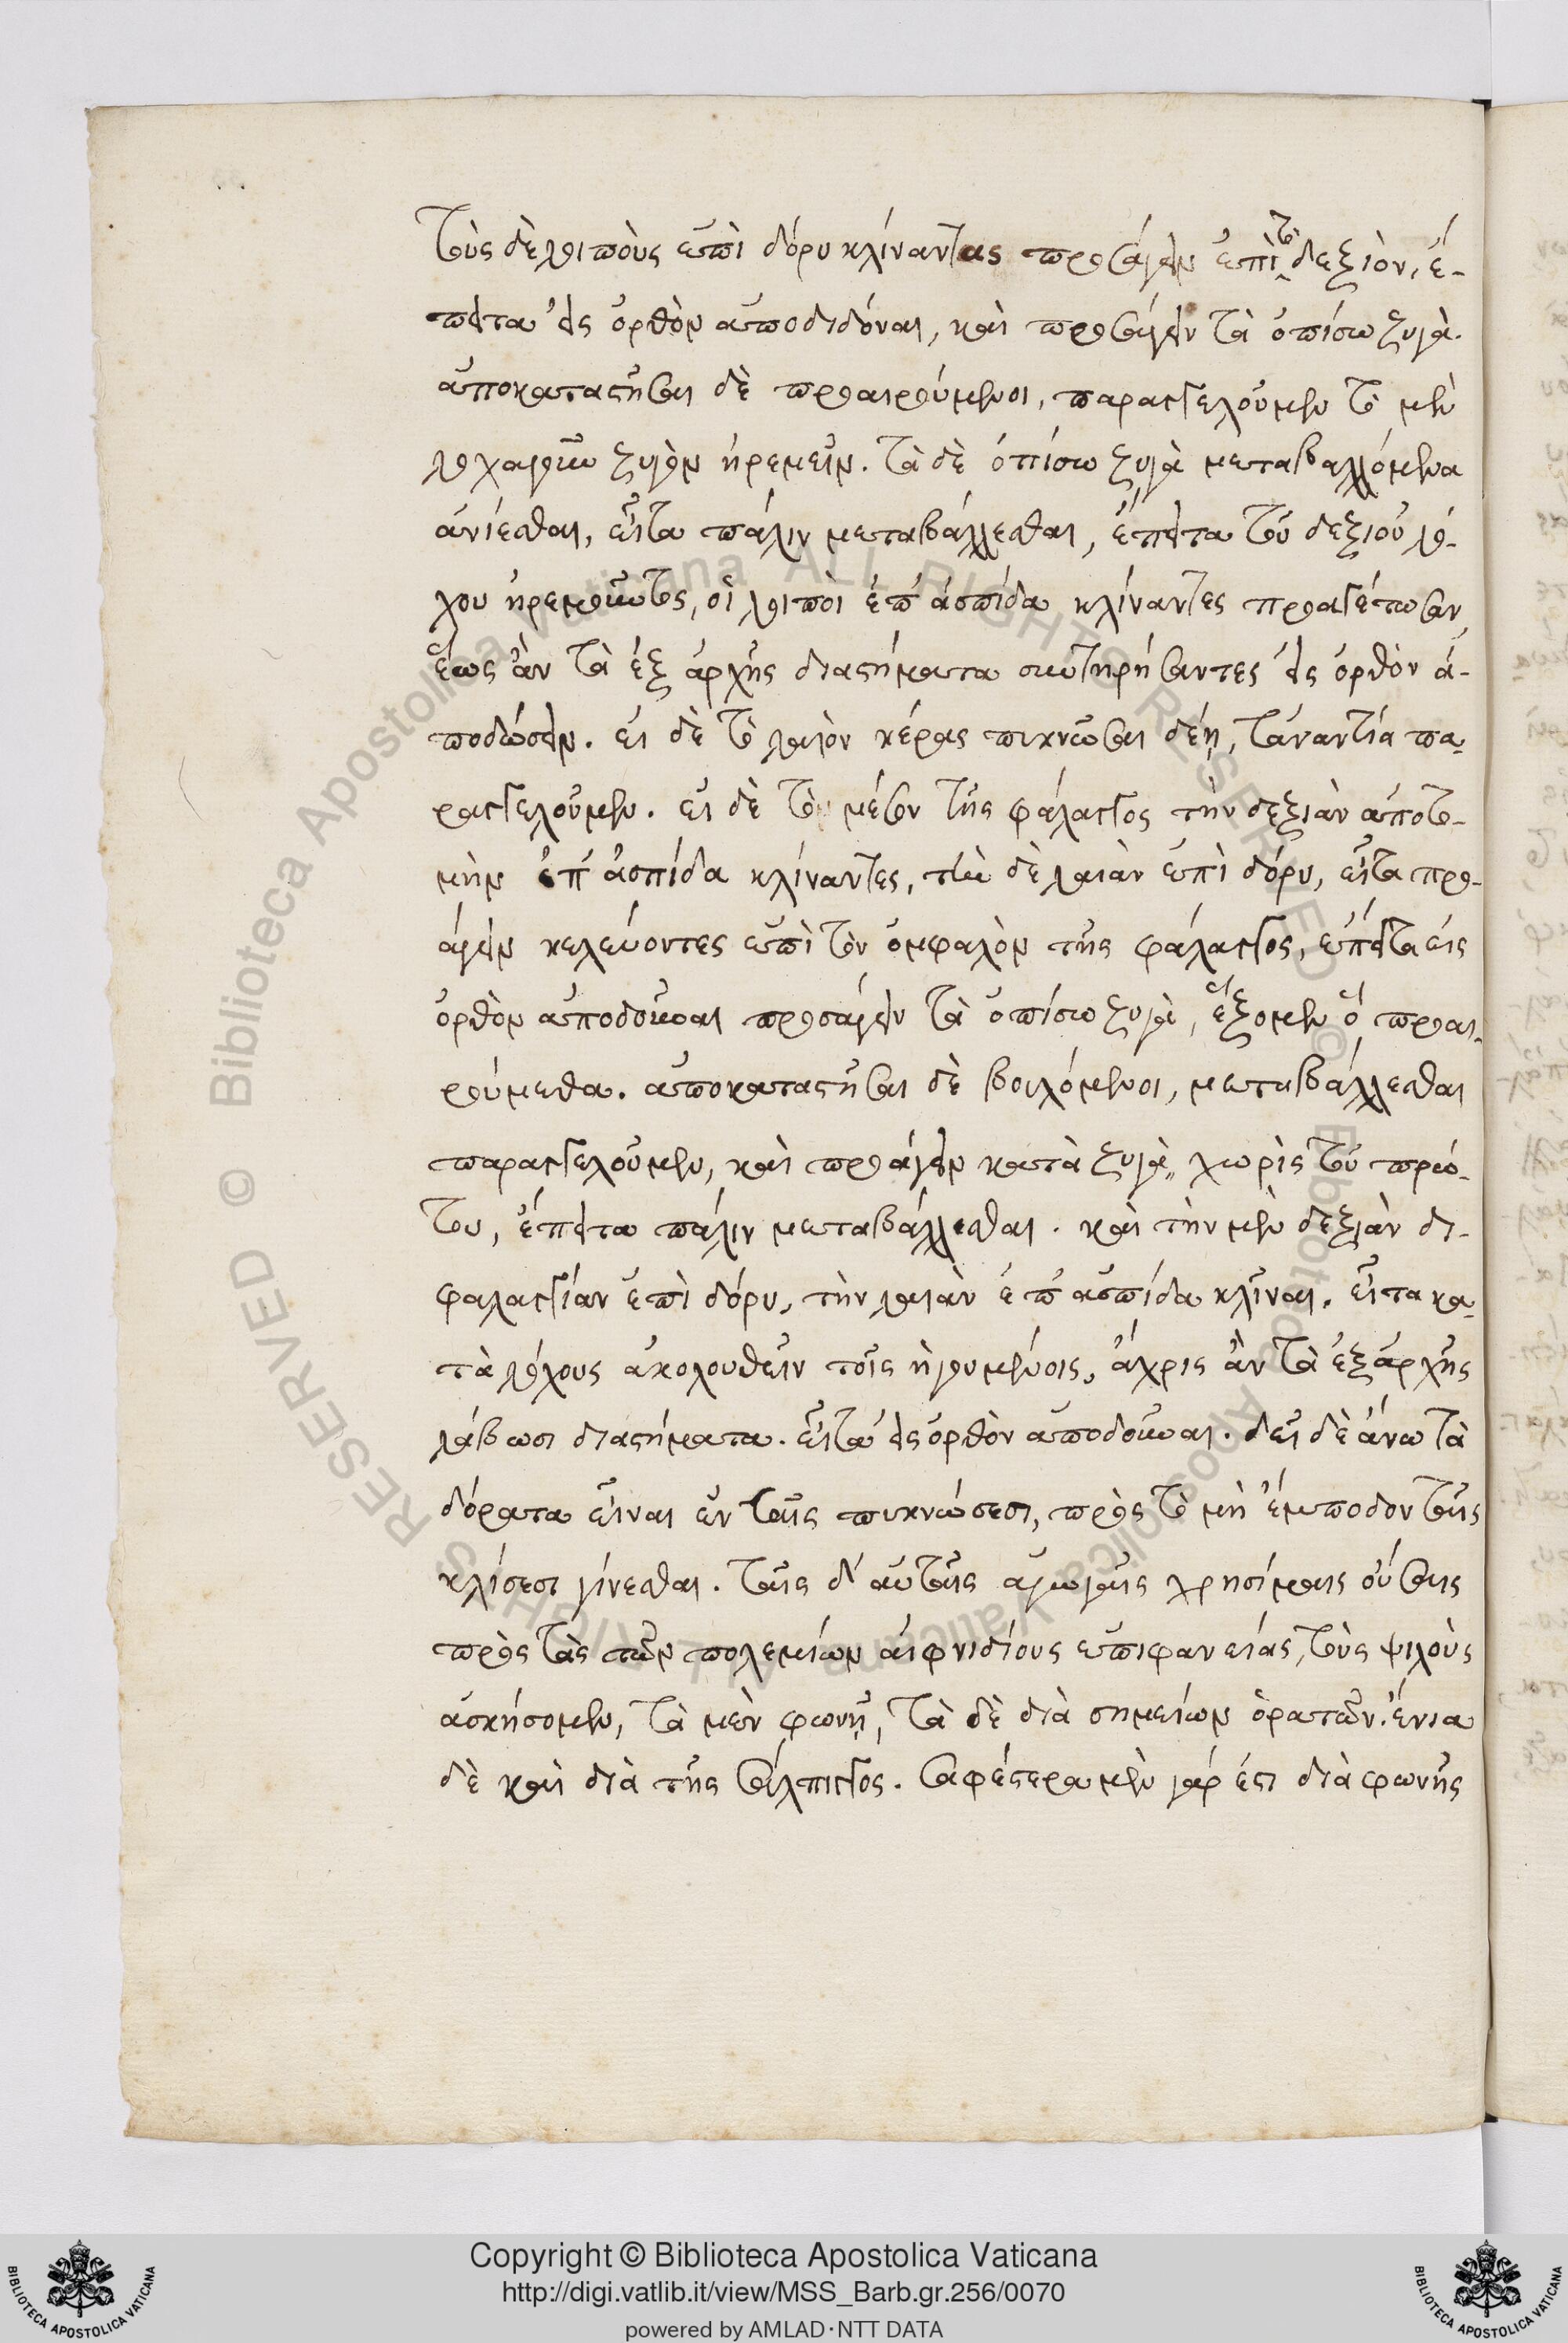 τοὺς δὲ λοιποὺς ἐπὶ δόρυ κλίναντας προσάγειν ἐπὶ τὸ δεξιὸν, ἔ-
πειτα εἰς ὀρθὸν ἀποδιδόναι, καὶ προσάγειν τὰ ὀπίσω ζυγά.
ἀποκαταστῆσαι δὲ προαιρούμενοι, παραγγελοῦμεν τὸ μὲν
λοχαγοῦν ζυγὸν ἠρεμεῖν. τὰ δὲ ὀπίσω ζυγὰ μεταβαλλόμενα
ἀνίεσθαι, εἶτα πάλιν μεταβάλλεσθαι, ἔπειτα τοῦ δεξιοῦ λό-
χου ἠρεμοῦντος, οἱ λοιποὶ ἐπ' ἀσπίδα κλίναντες προαγέτωσαν,
ἕως ἂν τὰ ἐξ ἀρχῆς διαστήματα συντηρήσαντες εἰς ὀρθὸν ἀ-
ποδώσειν. εἰ δὲ τὸ λαιὸν κέρας πυκνῶσαι δέῃ, τἀναντία πα-
ραγγελοῦμεν. εἰ δὲ τὸ μέσον τῆς φάλαγγος τὴν δεξιὰν ἀποτο-
μὴν ἐπ' ἀσπίδα κλίναντες, τὴν δὲ λαιὰν ἐπὶ δόρυ, εἶτα προ-
άγειν κελεύοντες ἐπὶ τὸν ὀμφαλὸν τῆς φάλαγγος, ἔπειτα εἰς
ὀρθὸν ἀποδοῦναι προσάγειν τὰ ὀπίσω ζυγὰ, ἕξομεν ὃ προαι-
ρούμεθα. ἀποκαταστῆσαι δὲ βουλόμενοι, μεταβάλλεσθαι
παραγγελοῦμεν, καὶ προάγειν κατὰ ζυγὰ, χωρὶς τοῦ πρώ-
του, ἔπειτα πάλιν μεταβάλλεσθαι. καὶ τὴν μὲν δεξιὰν δι-
φαλαγγίαν ἐπὶ δόρυ, τὴν λαιὰν ἐπ' ἀσπίδα κλῖναι. εἶτα κα-
τὰ λόχους ἀκολουθεῖν τοῖς ἡγουμένοις, ἄχρις ἂν τὰ ἐξ ἀρχῆς
λάβωσι διαστήματα. εἶτα εἰς ὀρθὸν ἀποδοῦναι. δεῖ δὲ ἄνω τὰ
δόρατα εἶναι ἐν ταῖς πυκνώσεσι, πρὸς τὸ μὴ ἔμποδον ταῖς
κλίσεσι γίνεσθαι. ταῖς δ' αὐταῖς ἀγωγαῖς χρησίμαις οὔσαις
πρὸς τὰς τῶν πολεμίων αἰφνιδίους ἐπιφανείας, τοὺς ψιλοὺς
ἀσκήσομεν, τὰ μὲν φωνῇ, τὰ δὲ διὰ σημείων ὁρατῶν. ἔνια
δὲ καὶ διὰ τῆς σάλπιγγος. σαφέστερα μὲν γάρ ἐστι διὰ φωνῆς
Copyright © Biblioteca Apostolica Vaticana
http://digi.vatlib.it/view/MSS_Barb.gr.256/0070
powered by AMLAD·NTT DATA
BIBLIOTECA APOSTOLICA VATICANA
BIBLIOTECA APOSTOLICA VATICANA
© Biblioteca Apostolica Vaticana ALL RIGHTS RESERVED
© Biblioteca Apostolica Vaticana ALL RIGHTS RESERVED